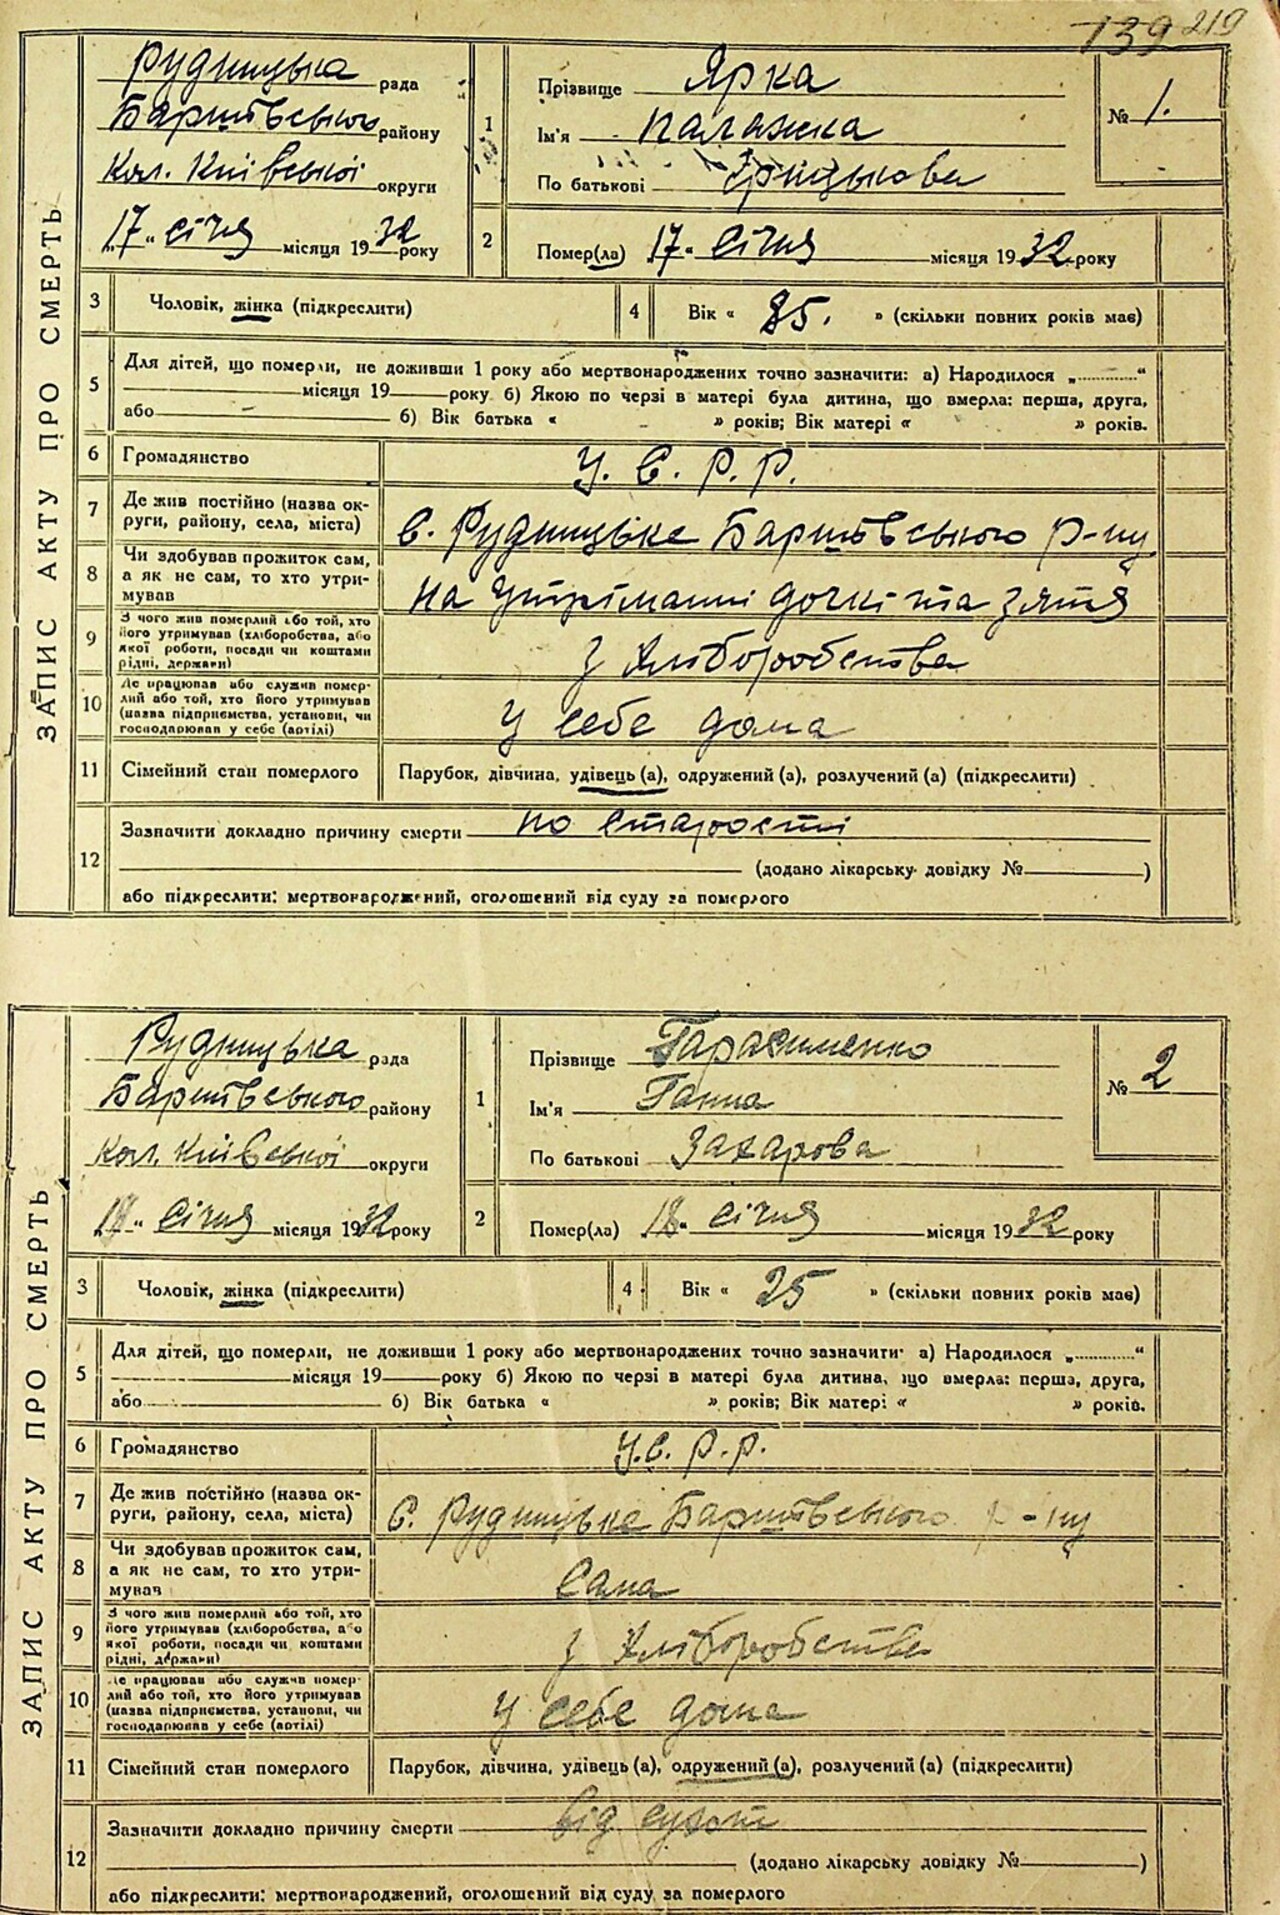 139 219
ЗАПИС АКТУ ПРО СМЕРТЬ
Рудницька рада
Баришівського району
Кол. Київської округи
„17“ січня місяця 1932 року
1
Прізвище Ярка
Ім'я Палажка
По батькові Грицькова
№ 1.
2
Помер(ла) 17 „ Січня місяця 1932 року
3 Чоловік, жінка (підкреслити)
4 Вік « 85. » (скільки повних років має)
5 Для дітей, що померли, не доживши 1 року або мертвонароджених точно зазначити: а) Народилося „..........“
місяця 19 року б) Якою по черзі в матері була дитина, що вмерла: перша, друга,
або - б) Вік батька « - » років; Вік матері « » років.
6 Громадянство У. С. Р. Р.
7 Де жив постійно (назва ок-
руги, району, села, міста)
с. Рудницьке Баришівського р-ну
8 Чи здобував прожиток сам,
а як не сам, то хто утри-
мував
на утріманні дочкі та зятя
9 З чого жив померлий або той, хто
його утримував (хліборобства, або
якої роботи, посади чи коштами
рідні, держави)
з хліборобства
10 Де працював або служив помер-
лий або той, хто його утримував
(назва підприємства, установи, чи
господарював у себе (артілі)
у себе дома
11 Сімейний стан померлого Парубок, дівчина, удівець (а), одружений (а), розлучений (а) (підкреслити)
12 Зазначити докладно причину смерти по старості
(додано лікарську довідку № )
або підкреслити: мертвонароджений, оголошений від суду за померлого
ЗАПИС АКТУ ПРО СМЕРТЬ
Рудницька рада
Баришівського району
Кол. Київської округи
18 „ Січня місяця 1932 року
1
Прізвище Гарасименко
Ім'я Ганна
По батькові Захарова
№ 2
2
Помер(ла) 18 „ січня місяця 1932 року
3 Чоловік, жінка (підкреслити)
4 Вік « 25 » (скільки повних років має)
5 Для дітей, що померли, не доживши 1 року або мертвонароджених точно зазначити: а) Народилося „..........“
місяця 19 року б) Якою по черзі в матері була дитина, що вмерла: перша, друга,
або б) Вік батька « » років; Вік матері « » років.
6 Громадянство У.С. Р.Р.
7 Де жив постійно (назва ок-
руги, району, села, міста)
С. Рудницьке Баришівського р-ну
8 Чи здобував прожиток сам,
а як не сам, то хто утри-
мував
Сама
9 З чого жив померлий або той, хто
його утримував (хліборобства, або
якої роботи, посади чи коштами
рідні, держави)
з хліборобства
10 Де працював або служив помер-
лий або той, хто його утримував
(назва підприємства, установи, чи
господарював у себе (артілі)
у себе дома
11 Сімейний стан померлого Парубок, дівчина, удівець (а), одружений (а), розлучений (а) (підкреслити)
12 Зазначити докладно причину смерти від сухот
(додано лікарську довідку № )
або підкреслити: мертвонароджений, оголошений від суду за померлого